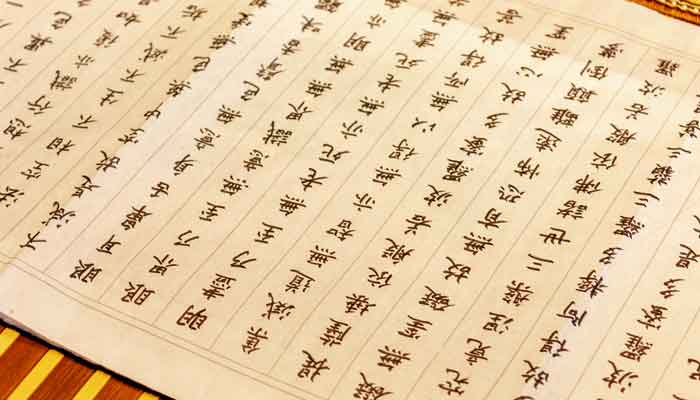 想行識亦復如
法空相不生不滅不
不減是故空中無色
眼耳鼻舌身意無色聲香味
眼界乃至無意識界無無明亦
明盡乃至無老死亦無老死盡
集滅道無智亦無得以無所得故
提薩埵依般若波羅蜜多故心無罣
礙無罣礙故無有恐怖遠離顛倒夢
究竟涅槃三世諸佛依般若波羅
故得阿耨多羅三
羅蜜多是